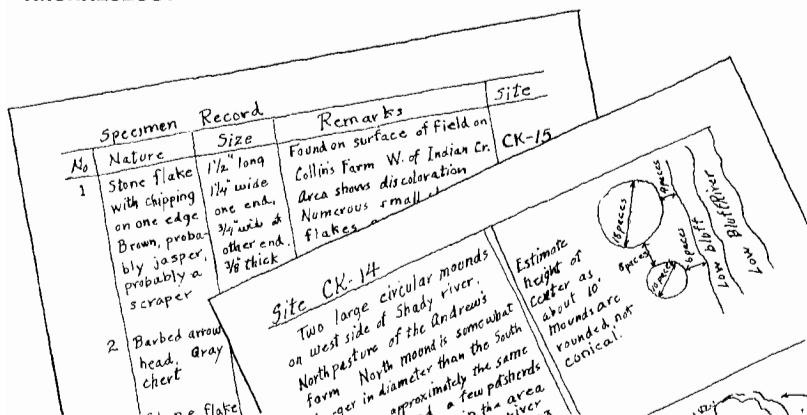 Specimen Record
No
Nature
Size
Remarks
Site
1
Stone flake
with chipping
on one edge
Brown, proba-
bly jasper,
probably a
scraper
1½" long
1¼" wide
one end,
¾" wide at
other end.
⅜ thick
Found on surface of field on
Collins Farm W. of Indian Cr.
Area shows discoloration
Numerous small
flakes
CK-15
2
Barbed arrow
head, Gray
chert
flake
Site CK-14
Two large circular mounds
on west side of Shady river.
North pasture of the Andrew's
farm North mound is somewhat
in diameter than the South
approximately the same
a few potsherds
in the area
river
Estimate
height of
center as
about 10'
mounds are
rounded, not
conical.
18 paces
9 paces
8 paces
10 paces
6 paces
Low bluff
Bluff River
Low